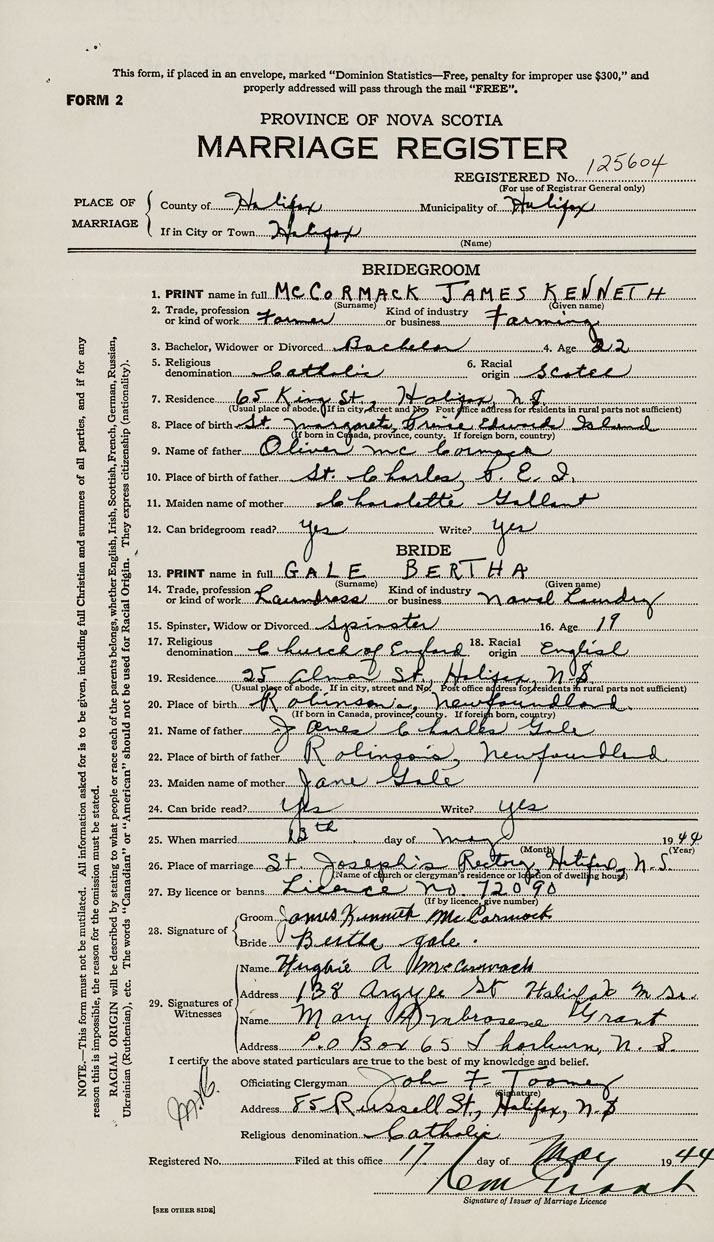 This form, if placed in an envelope, marked "Dominion Statistics—Free, penalty for improper use $300," and
properly addressed will pass through the mail "FREE".
FORM 2
PROVINCE OF NOVA SCOTIA
MARRIAGE REGISTER
REGISTERED No. 125604
(For use of Registrar General only)
PLACE OF MARRIAGE
County of Halifax Municipality of Halifax
If in City or Town Halifax
(Name)
BRIDEGROOM
1. PRINT name in full McCORMACK JAMES KENNETH
(Surname) (Given name)
2. Trade, profession or kind of work Farmer Kind of industry or business Farming
3. Bachelor, Widower or Divorced Bachelor 4. Age 22
5. Religious denomination Catholic 6. Racial origin Scotch
7. Residence 65 King St., Halifax, N.S.
(Usual place of abode. If in city, street and No. Post office address for residents in rural parts not sufficient)
8. Place of birth St. Margarets, Prince Edward Island
(If born in Canada, province, county. If foreign born, country)
9. Name of father Oliver McCormack
10. Place of birth of father St. Charles, P.E.I.
11. Maiden name of mother Charlotte Gallant
12. Can bridegroom read? Yes Write? Yes
BRIDE
13. PRINT name in full GALE BERTHA
(Surname) (Given name)
14. Trade, profession or kind of work Laundress Kind of industry or business Naval Laundry
15. Spinster, Widow or Divorced Spinster 16. Age 19
17. Religious denomination Church of England 18. Racial origin English
19. Residence 25 Almon St., Halifax, N.S.
(Usual place of abode. If in city, street and No. Post office address for residents in rural parts not sufficient)
20. Place of birth Robinson's, Newfoundland.
(If born in Canada, province, county. If foreign born, country)
21. Name of father James Charles Gale
22. Place of birth of father Robinson's, Newfoundland
23. Maiden name of mother Jane Gale
24. Can bride read? Yes Write? Yes
25. When married 13th day of May 1944
(Month) (Year)
26. Place of marriage St. Joseph's Rectory, Halifax, N.S.
(Name of church or clergyman's residence or location of dwelling house)
27. By licence or banns Licence No. 72090
(If by licence, give number)
28. Signature of
Groom James Kenneth McCormack
Bride Bertha Gale.
29. Signatures of Witnesses
Name Hughie A McCormack
Address 138 Argyle St Halifax
Name Mary Ambrosene Grant
Address P.O Box 65 Thorburn, N.S.
I certify the above stated particulars are true to the best of my knowledge and belief.
Officiating Clergyman John F. Toomey
(Signature)
Address 85 Russell St., Halifax, N.S
Religious denomination Catholic
Registered No. Filed at this office 17 day of May 1944
Signature of Issuer of Marriage Licence
[SEE OTHER SIDE]
NOTE.—This form must not be mutilated. All information asked for is to be given, including full Christian and surnames of all parties, and if for any
reason this is impossible, the reason for the omission must be stated.
RACIAL ORIGIN will be described by stating to what people or race each of the parents belongs, whether English, Irish, Scottish, French, German, Russian,
Ukrainian (Ruthenian), etc. The words "Canadian" or "American" should not be used for Racial Origin. They express citizenship (nationality).